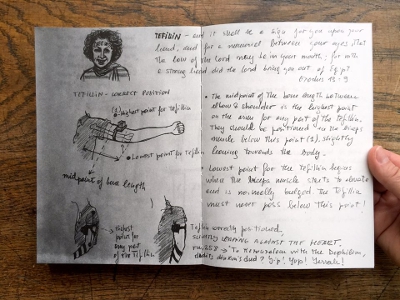 TEFILLIN - and it shall be a sign for you upon your
hand, and for a memorial between your eyes, that
the law of the Lord may be in your mouth; for with
a strong hand did the Lord bring you out of Egypt
Exodus 13:9
TEFILLIN - CORRECT POSITION
(1) Highest point for Tefillin
Lowest point for Tefillin
midpoint of bone length
• The midpoint of the bone length between
elbow & shoulder is the highest point
on the arm for any part of the Tefillin.
They should be positioned on the biceps
muscle below this point (1), slightly
leaning towards the body.
• Lowest point for the Tefillin begins
where the biceps muscle starts to elevate
and is normally bulged. The Tefillin
must never pass below this point!
Highest
point for
any part
of the Tefillin
Tefillin correctly positioned,
slightly LEANING AGAINST THE HEART.